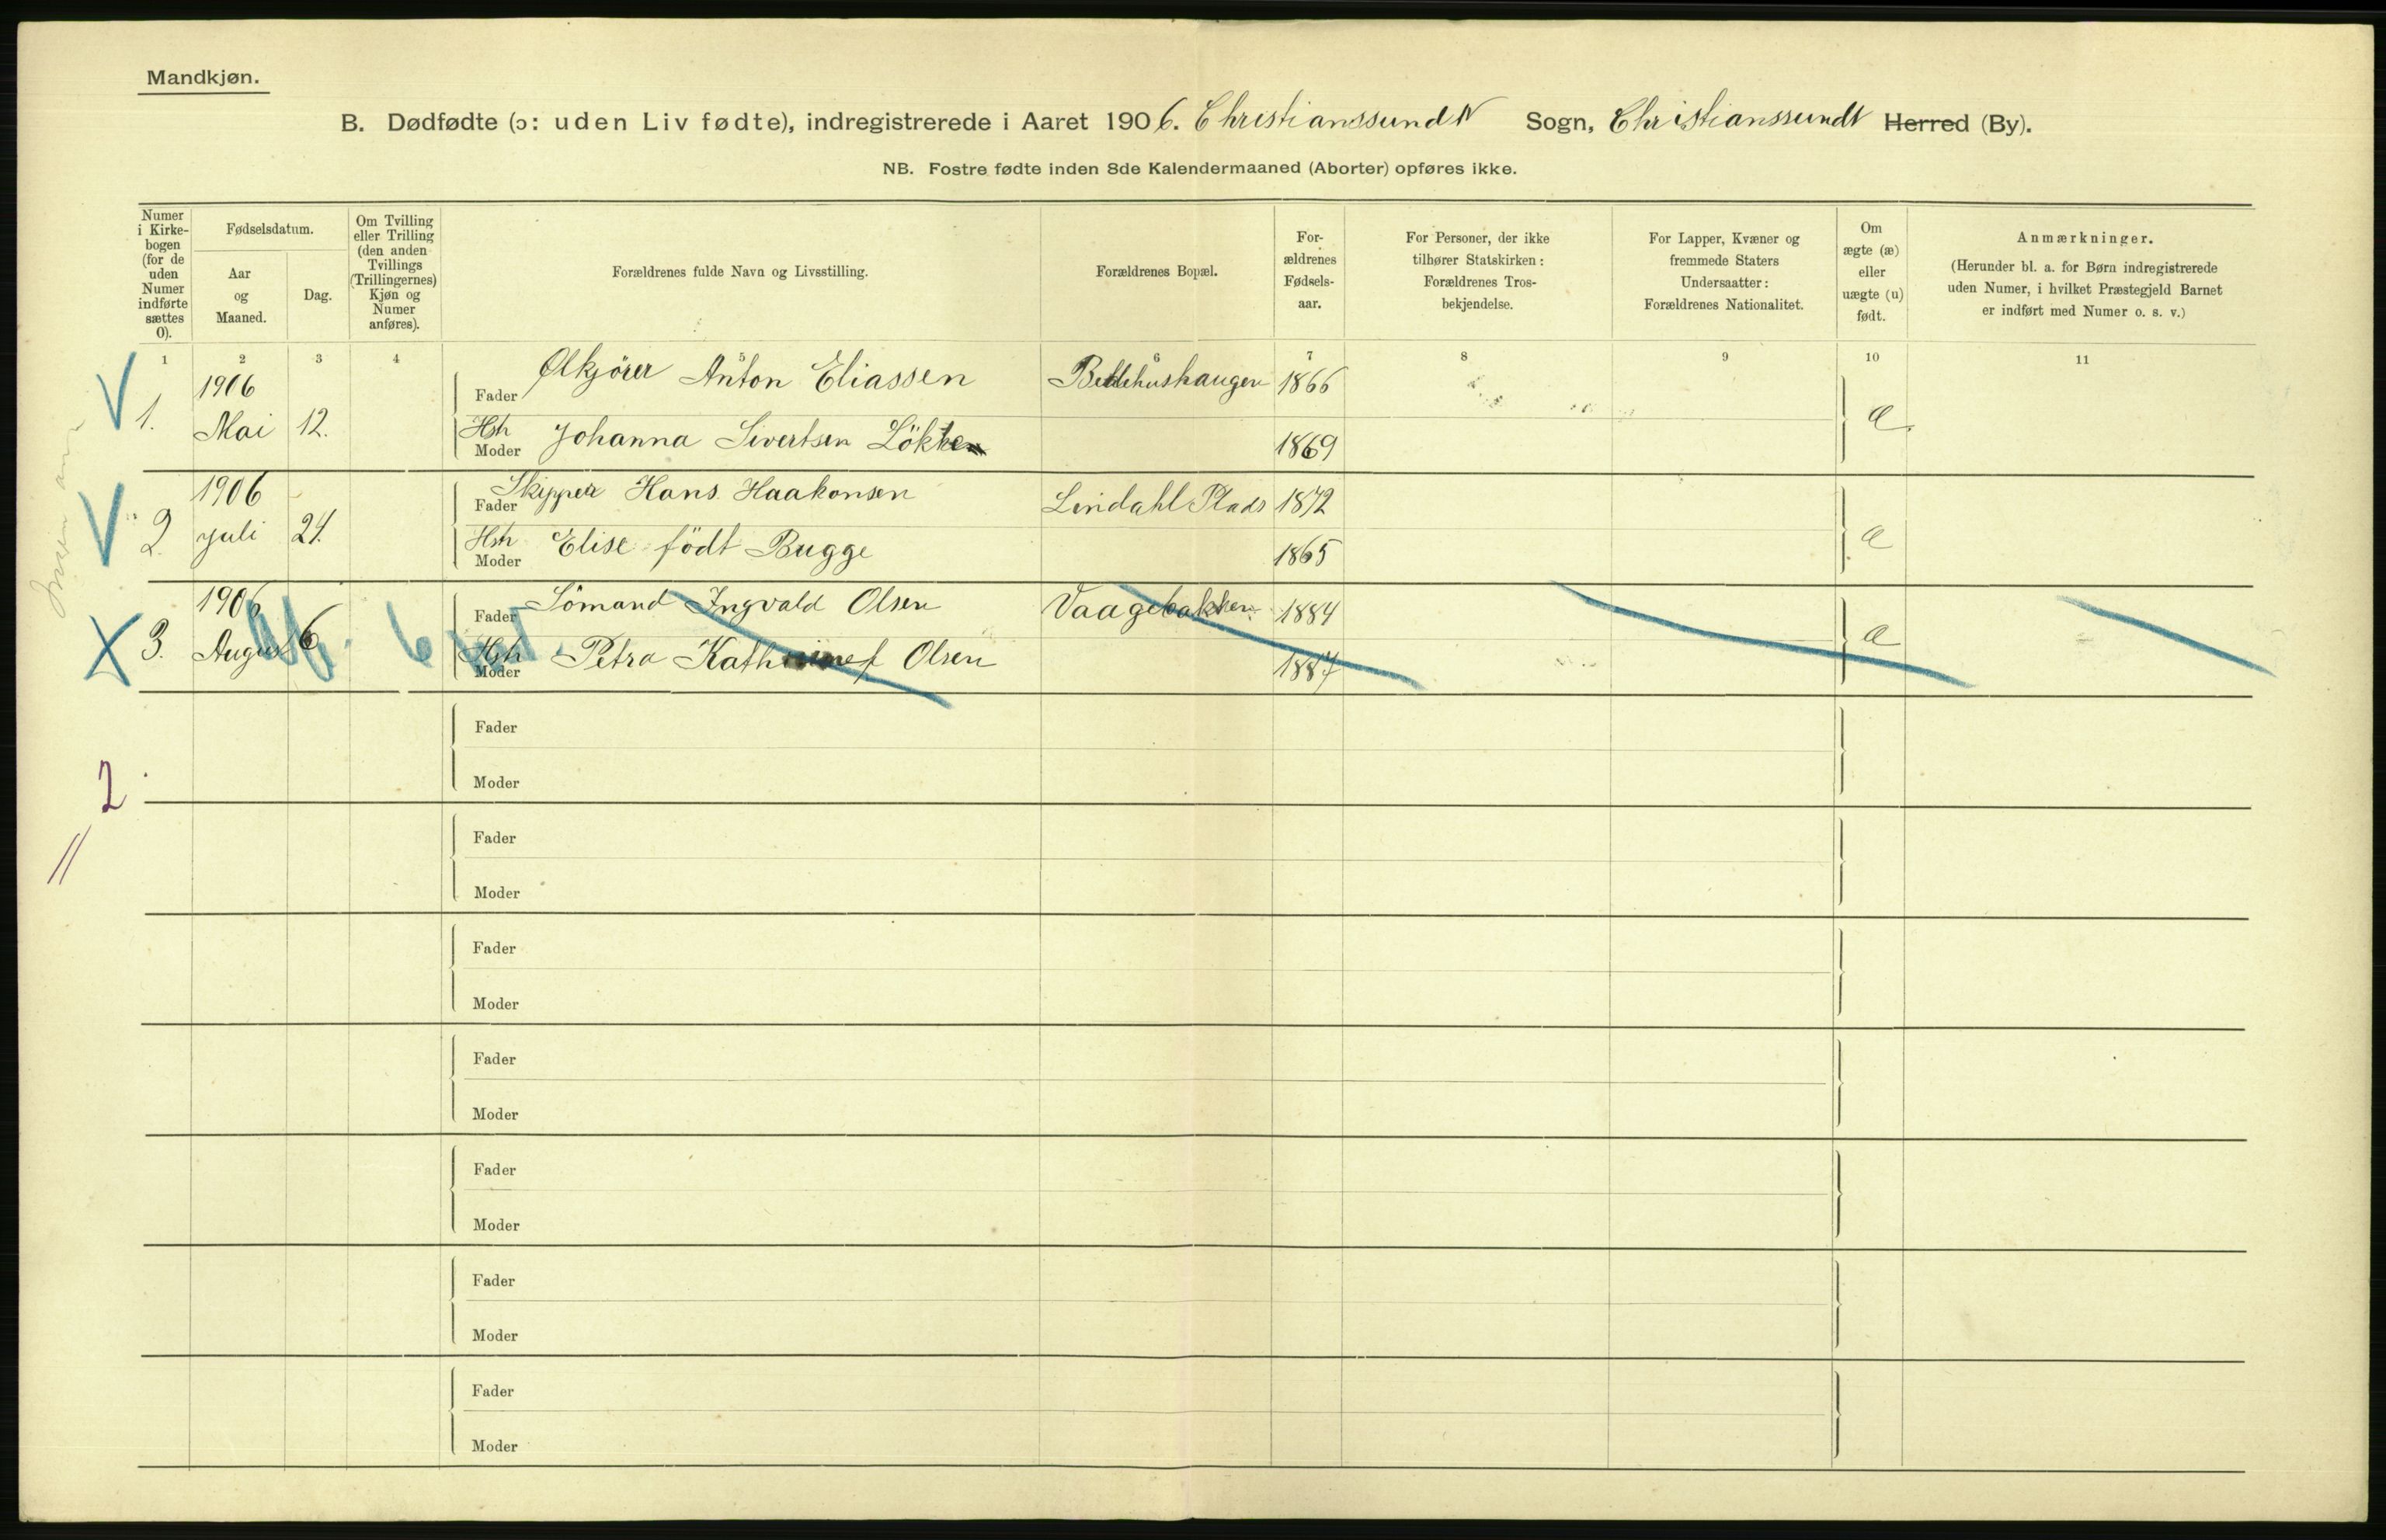 Mandkjøn.
B. Dødfødte (ɔ: uden Liv fødte), indregistrerede i Aaret 1906. Christianssund N Sogn, Christianssund N Herred (By).
NB. Fostre fødte inden 8de Kalendermaaned (Aborter) opføres ikke.
Numer i Kirke- bogen (for de uden Numer indførte sættes 0).
Fødselsdatum.
Aar og Maaned.
Dag.
Om Tvilling eller Trilling (den anden Tvillings (Trillingernes) Kjøn og Numer anføres).
Forældrenes fulde Navn og Livsstilling.
Forældrenes Bopæl.
For- ældrenes Fødsels- aar.
For Personer, der ikke tilhører Statskirken: Forældrenes Tros- bekjendelse.
For Lapper, Kvæner og fremmede Staters Undersaatter: Forældrenes Nationalitet.
Om ægte (æ) eller uægte (u) født.
Anmærkninger.
(Herunder bl. a. for Børn indregistrerede uden Numer, i hvilket Præstegjeld Barnet er indført med Numer o. s. v.)
1 2 3 4 5 6 7 8 9 10 11
V 1. 1906 Mai 12. Fader Ølkjörer Anton Eliassen Bedehushaugen 1866 æ.
Hsh Moder Johanna Sivertsen Lökken 1869
V 2. 1906 Juli 24. Fader Skipper Hans Haakonsen Lindahl Plads 1872 æ
Hsh Moder Elise födt Bugge 1865
X 3. 1906 August 6 Fader Sömand Ingvald Olsen Vaagebakken 1884 æ
Hsh Moder Petra Olsen 1887
Fader
Moder
2
Fader
Moder
Fader
Moder
Fader
Moder
Fader
Moder
Fader
Moder
Fader
Moder